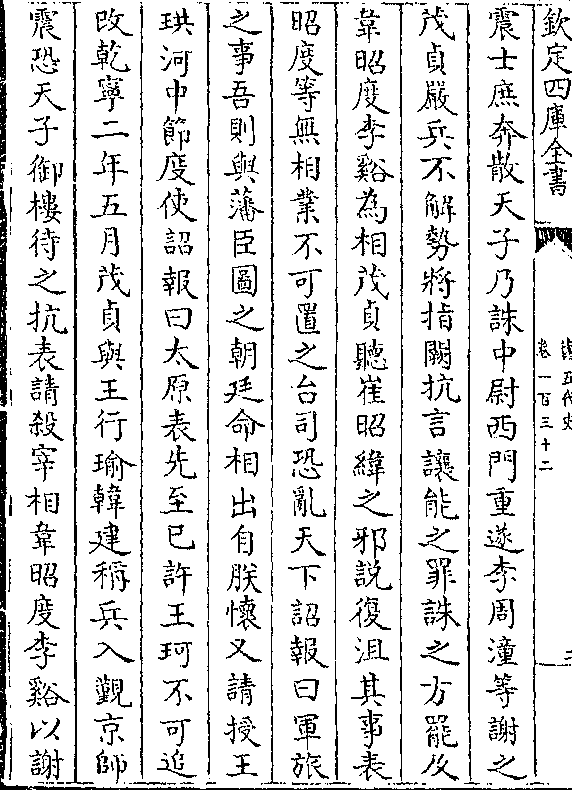 欽定四庫全書
舊五代史
卷一百三十二
震士庶奔散天子乃誅中尉西門重遂李周潼等謝之
茂貞嚴兵不解勢將指闕抗言讓能之罪誅之方罷及
韋昭度李谿為相茂貞聽崔昭緯之邪說復沮其事表
昭度等無相業不可置之台司恐亂天下詔報曰軍旅
之事吾則與藩臣圖之朝廷命相出自朕懷又請授王
珙河中節度使詔報曰太原表先至已許王珂不可追
改乾寧二年五月茂貞與王行瑜韓建稱兵入覲京師
震恐天子御樓待之抗表請殺宰相韋昭度李谿以謝